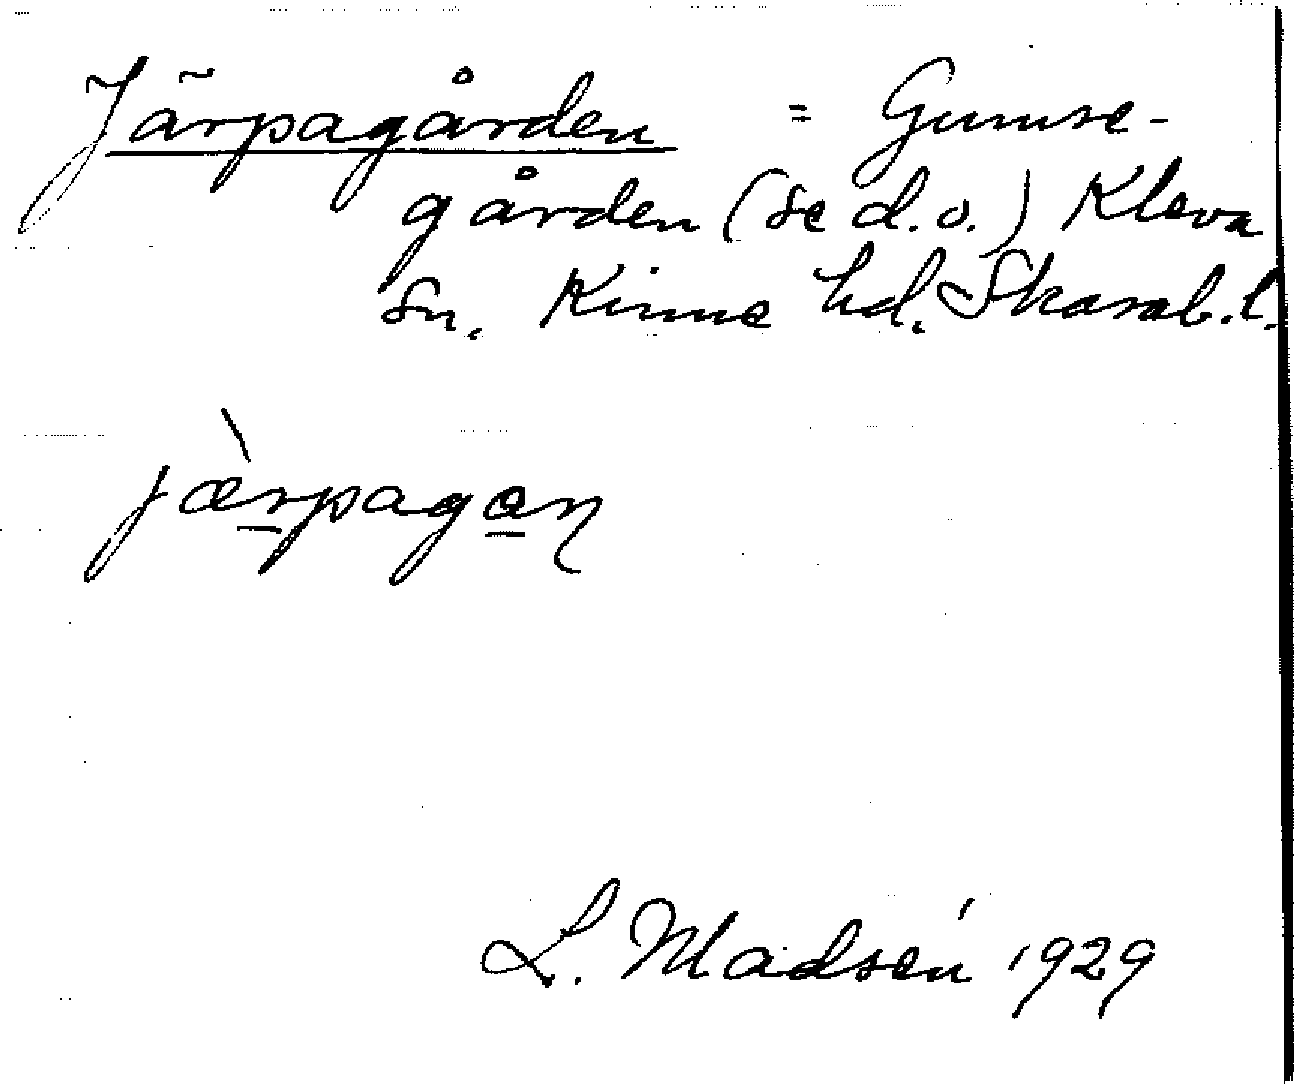 Järpagården = Gumse-
gården (se d.o.) Kleva
sn. Kinne hd. Skarab. l.
jæ̀rpagan
L. Madsén 1929